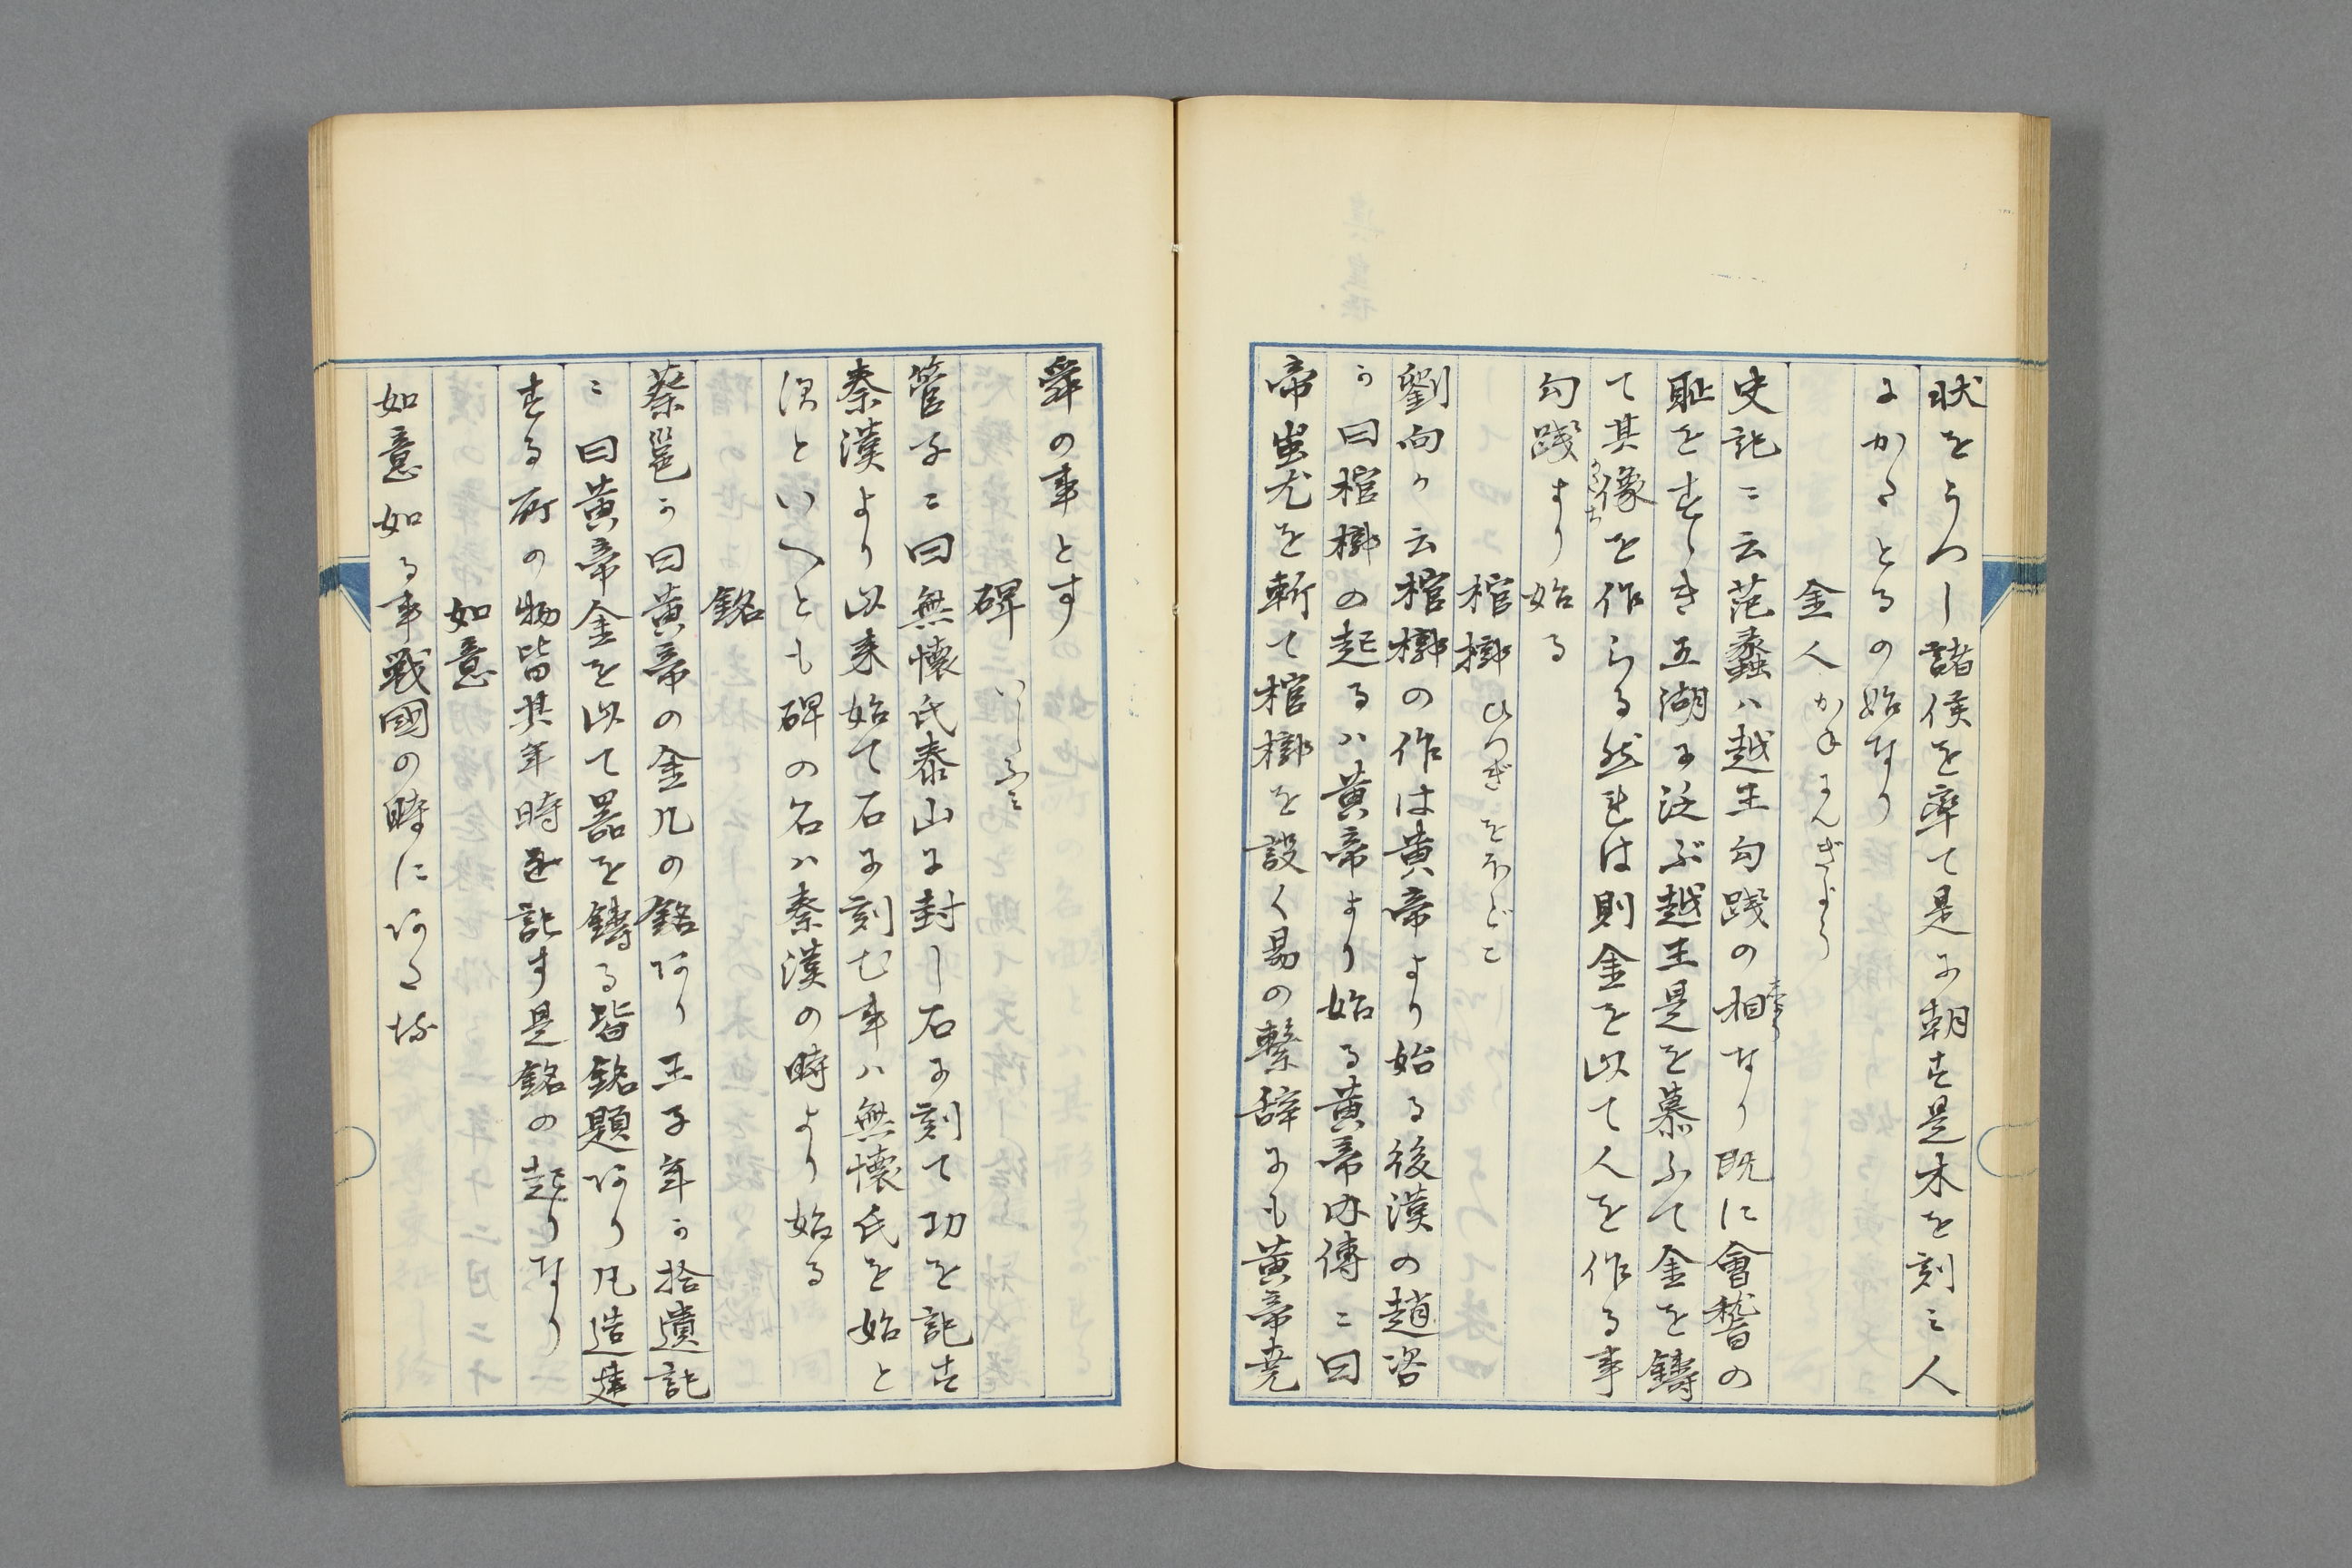 状をうつし諸侯を率て是に朝す是木を刻ミ人
にかたとるの始なり
金人 かねにんぎよう
史記ニ云范蠡ハ越王勾践の相なり既に會稽の
耻をすゝき五湖に泛ぶ越王是を慕ふて金を鋳
て其像を作らる然れは則金を以て人を作る事
かたち
勾踐より始る
棺槨 ひつぎをほどこ
劉向か云棺槨の作は黄帝より始る後漢の趙咨
か曰棺槨の起るハ黄帝より始る黄帝内傳ニ曰
帝蚩尤を斬て棺槨を設く易の繋辞にも黄帝堯
舜の事とす
碑 いしふミ
管子ニ曰無懐氏泰山に封し石に刻て功を記す
秦漢より以来始て石に刻む事ハ無懐氏を始と
須といへとも碑の名ハ秦漢の時より始る
銘
蔡邕か曰黄帝の金几の銘あり王子年か拾遺記
ニ曰黄帝金を以て器を鋳る皆銘題あり凡造建
する所の物皆其年時を記す是銘の起りなり
如意
如意如る事戦國の時にあた